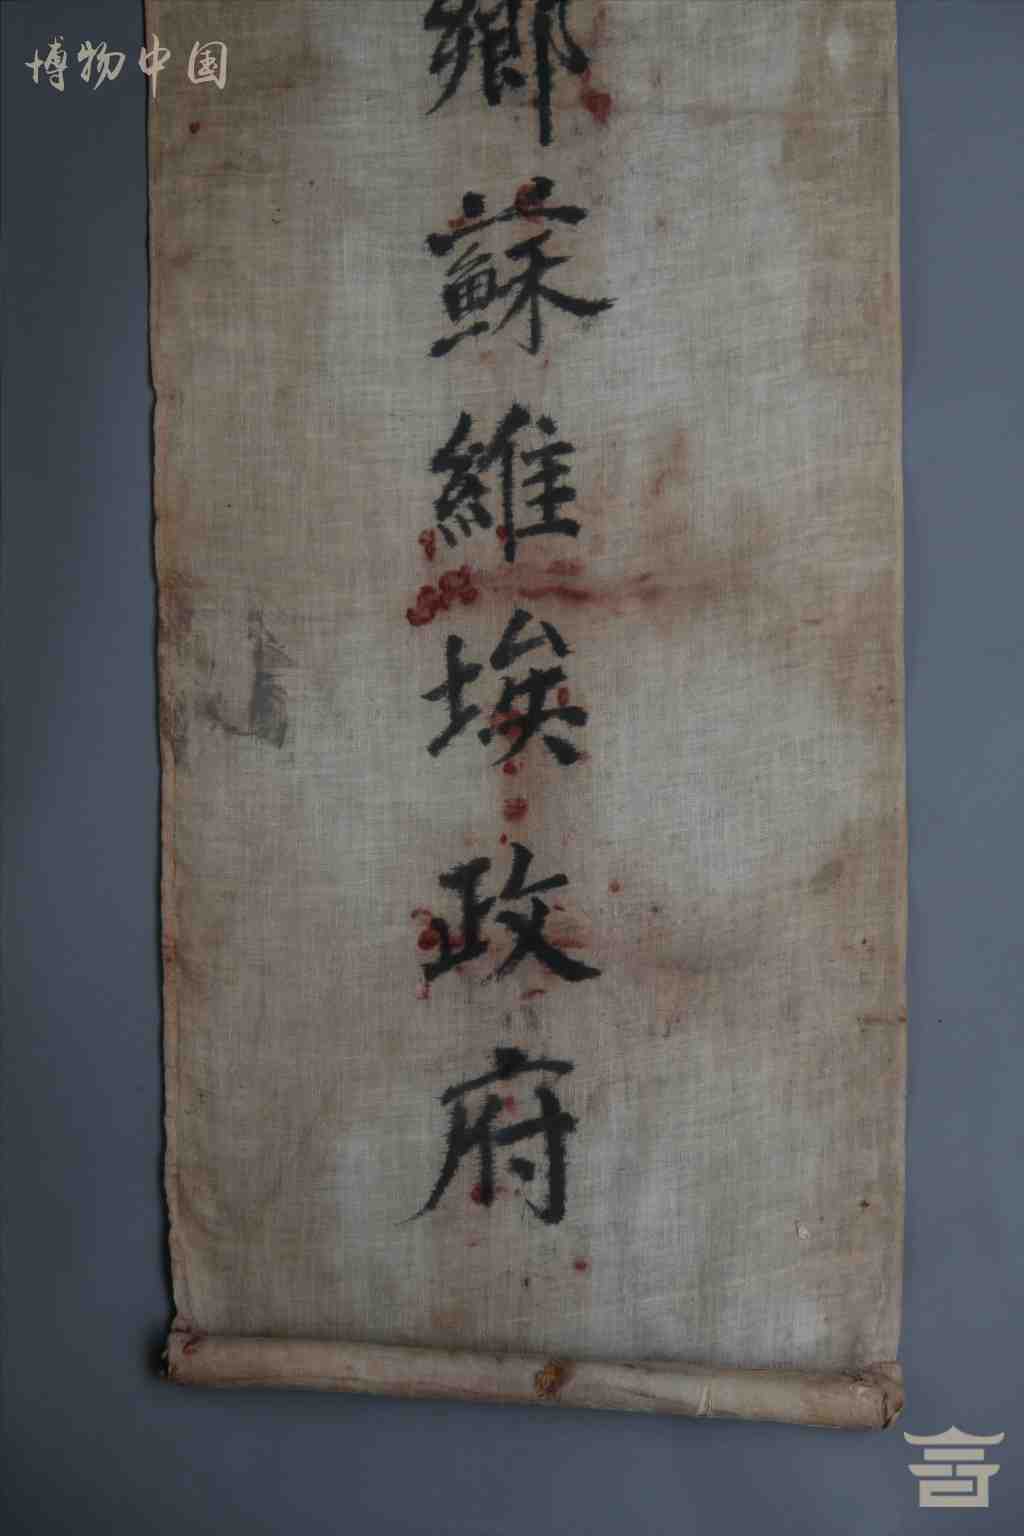 博物中国
鄉蘇維埃政府